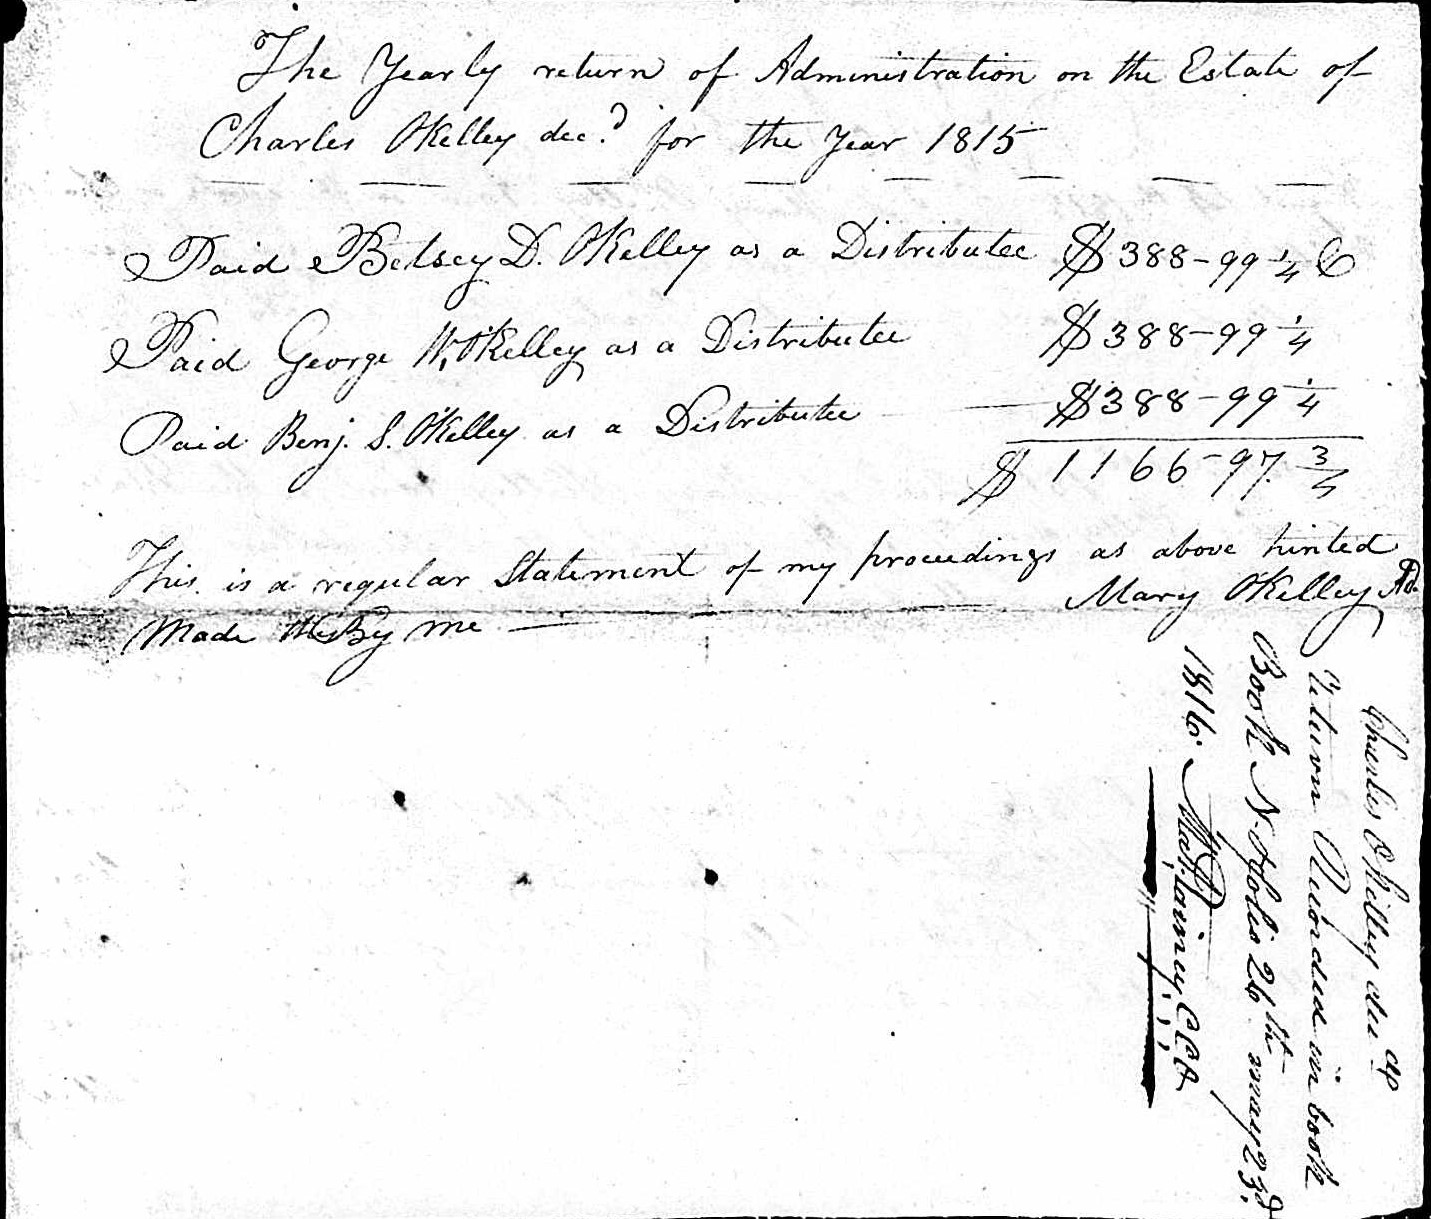 The Yearly return of Administration on the Estate of
Charles OKelley decd for the Year 1815
Paid Betsey D. OKelley as a Distributee $388-99 1/4 C
Paid George W. OKelley as a Distributee $388-99 1/4
Paid Benj. S. OKelley as a Distributee $388-99 1/4
$ 1166-97. 3/4
This is a regular Statement of my proceedings as above hinted
Mary OKelley Ad.
Made By me
Charles OKelley
return Recorded in book
Book N. folio 26th may 23d
1816. CCO